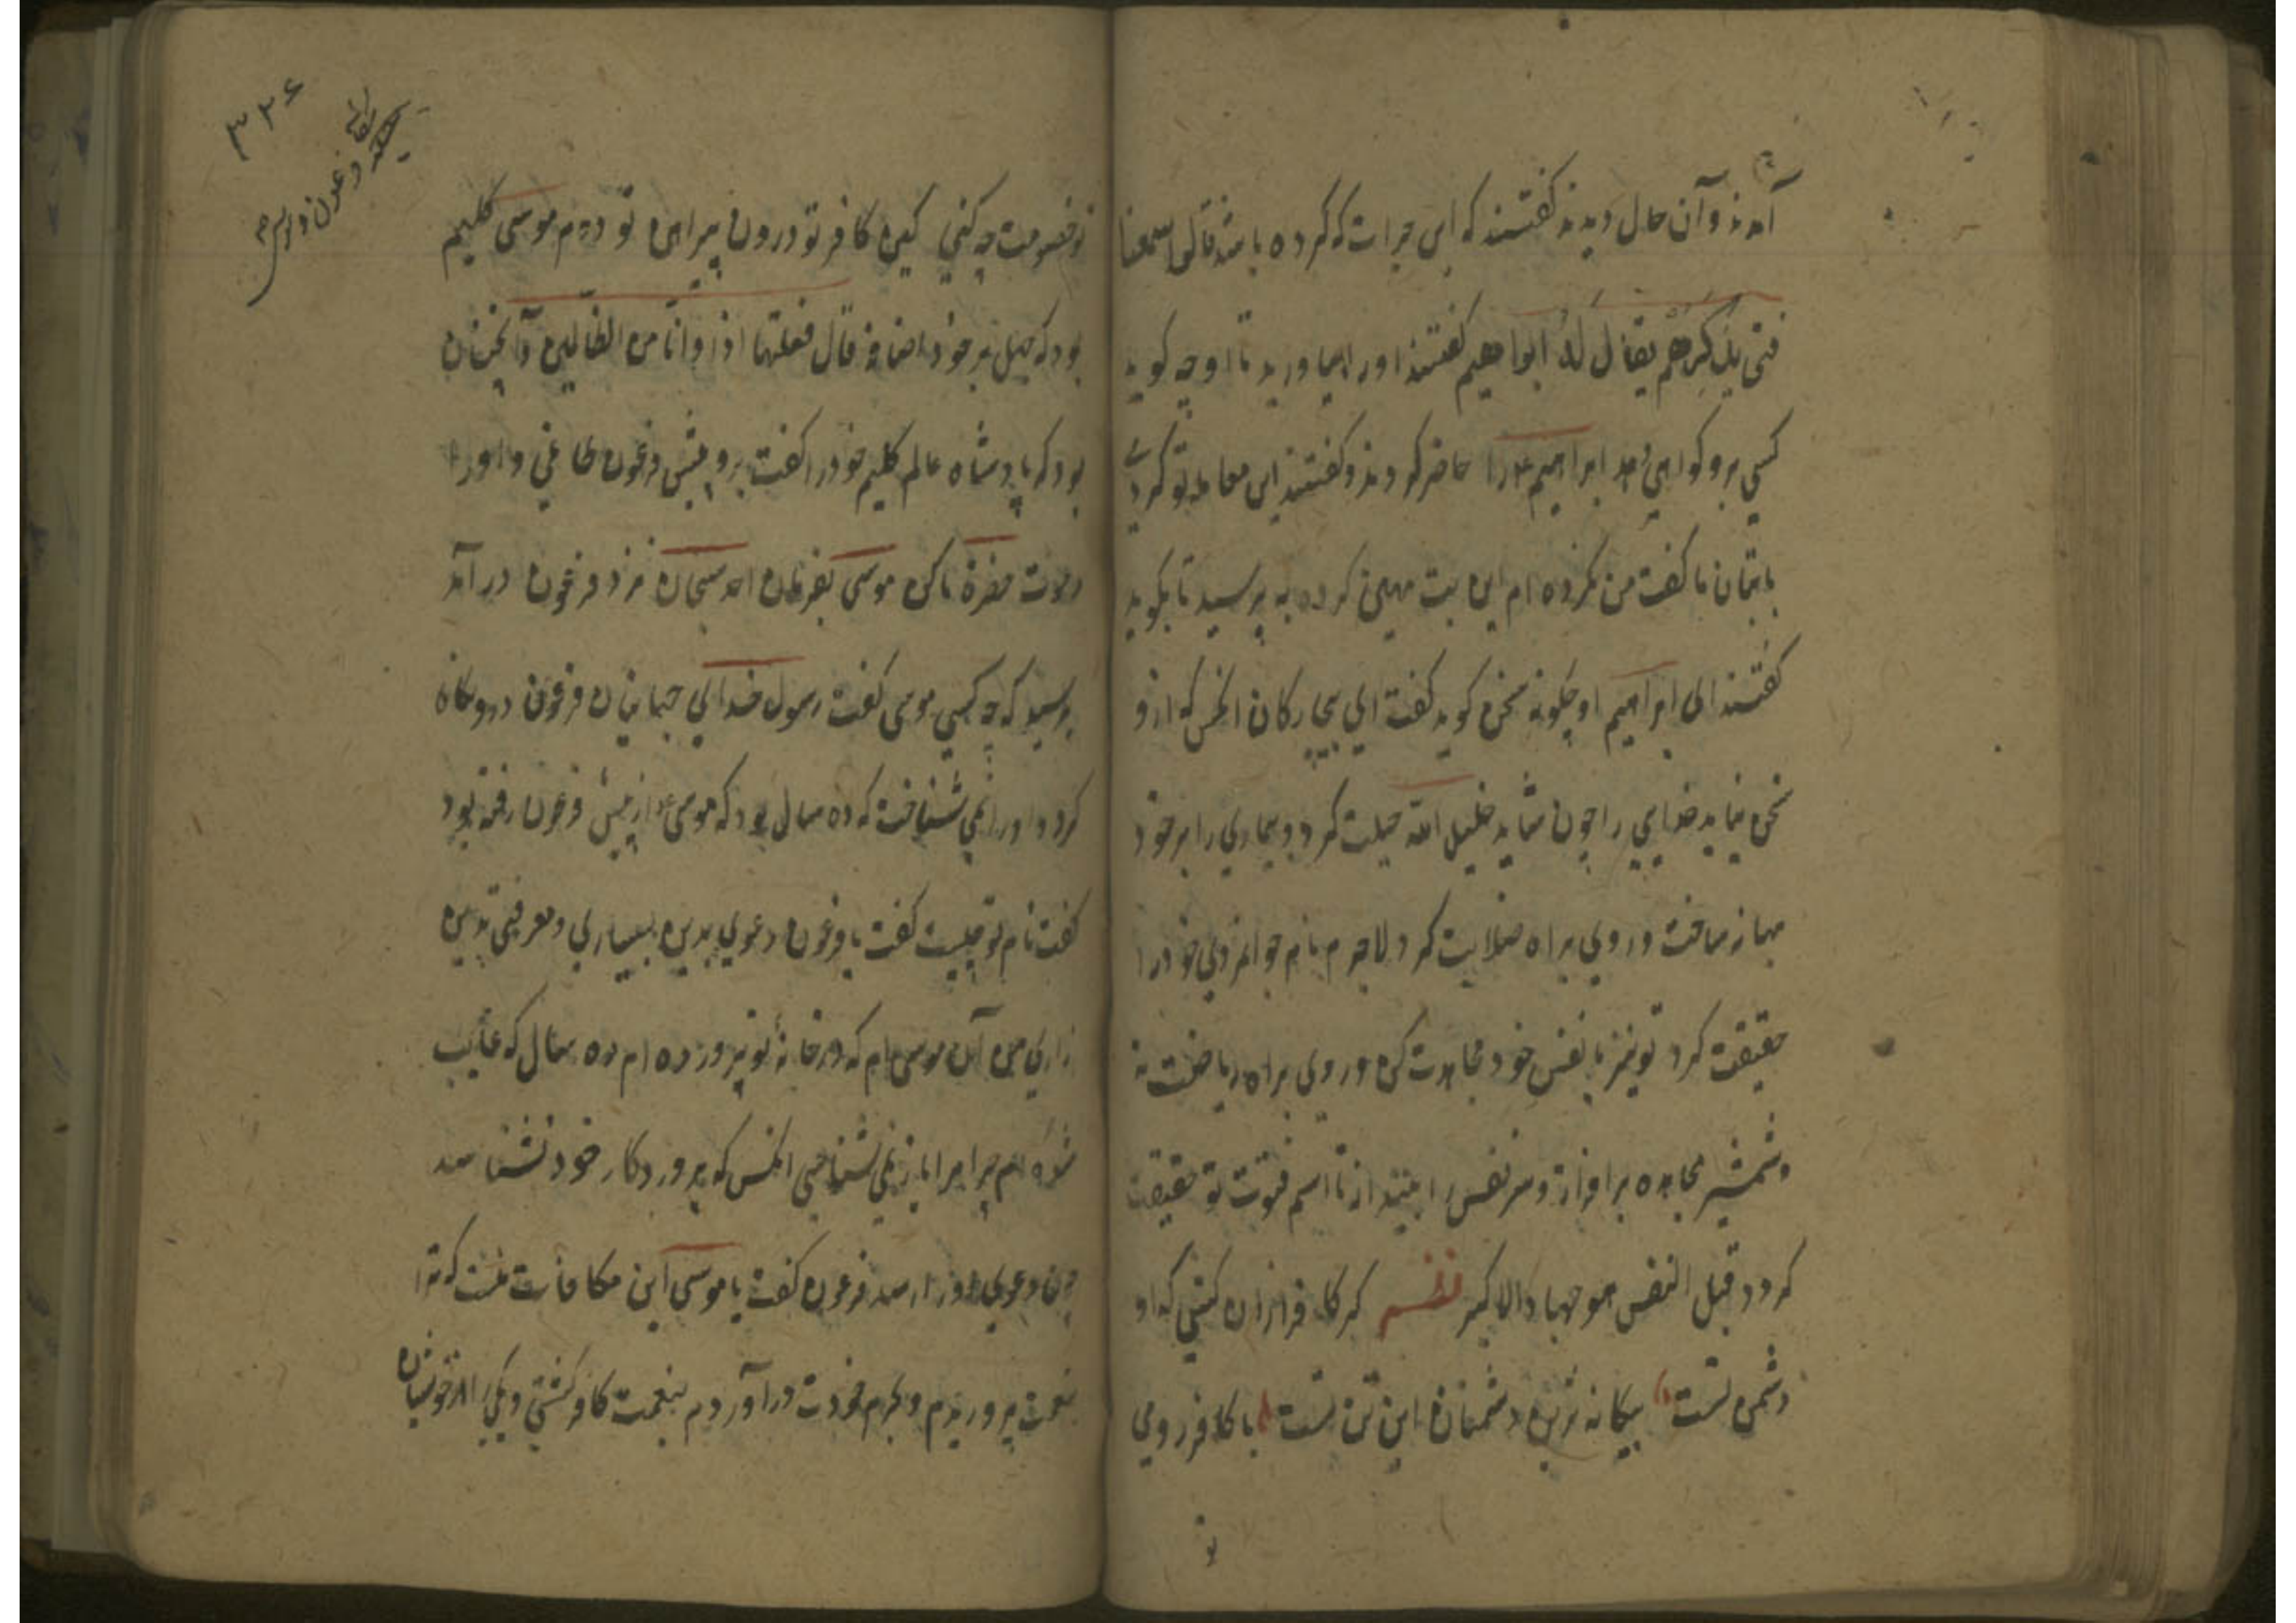 آمدند و آن حال دیدند گفتند که این جرات که کرده باشد قالوا سمعنا
فتی یذکرهم یقال له ابراهیم گفتند او را بیاورید تا او چه گوید
کسی برو گواهی دهد ابراهیم ع را حاضر کردند و گفتند این معامله تو کردی
با بتان ما گفت من نکرده ام این بت مهین کرده به پرسید تا بگوید
گفتند ای ابراهیم او چگونه سخن گوید گفت ای بیچارگان انکس که ازو
سخن نیاید خدایی را چون شاید خلیل الله حیلت کرد و بیماری را بر خود
بهانه ساخت و روی براه صلابت کرد لاجرم نام جوانمردی خود را
حقیقت کرد تو نیز با نفس خود مجاهدت کن و روی براه ریاضت نه
و شمشیر مجاهده برافراز و سر نفس را بینداز تا اسم فتوت تو حقیقت
گردد قتل النفس هو جهاد الاکبر نظم گر کافر ازان کشی که او
دشمن تست بیگانه ترین دشمنان این تن تست با کافر رومی
تو
۳۲۶
تو خصومت چه کنی کین کافر تو درون پیراهن تو دوم موسی کلیم
بود که جهل بر خود اضافه قال فعلتها اذا وانا من الظالمین و آنچنان
بود که پادشاه عالم کلیم خود را گفت برو پیش فرعون طاغی و او را
دعوت حضرة ما کن موسی بفرمان احد سبحان نزد فرعون در آمد
پرسید که چه کسی موسی گفت رسول خدای جهانیان فرعون درو نگاه
کرد و او را نمی شناخت که ده سال بود که موسی ع از پیش فرعون رفته بود
گفت نام تو چیست گفت یا فرعون دعوی بدین بسیاری و معرفتی بدین
زاری من آن موسی ام که در خانهٔ تو پرورده ام ده سال که غایب
شده ام چرا مرا باز نمی شناسی انکس که پروردگار خود نشناسد
چون دعوی او را رسد فرعون گفت یا موسی این مکافات منست که ترا
بنعمت پروریدم و بحرم خودت در آوردم بنعمت کافر گشتی و یکی را از خویشان